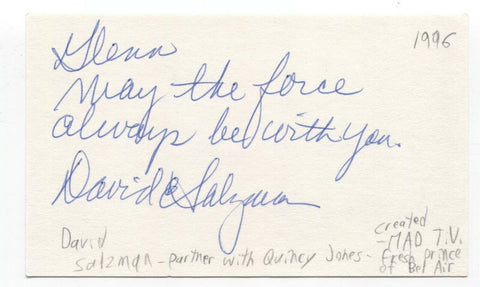 1996
Glenn
May the force
always be with you.
David Salzman
David
Salzman - partner with Quincy Jones -
created
- MAD T.V.
- Fresh prince
of Bel Air